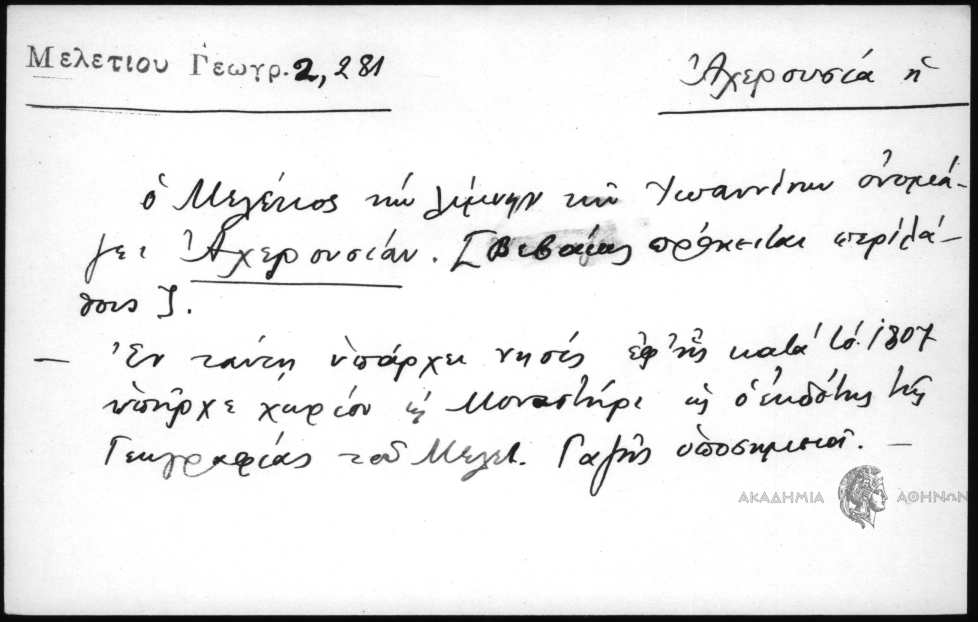 Μελετίου Γεωγρ. 2, 281
Ἀχερουσία ἡ
ὁ Μελέτιος τὴν λίμνην τῶν Ἰωαννίνων ὀνομά-
ζει Ἀχερουσίαν. [Βεβαίως πρόκειται περὶ λά-
θους].
— Ἐν ταύτῃ ὑπάρχει νησίς ἐφ' ἧς κατὰ τὸ 1807
ὑπῆρχε χωρίον ἢ Μοναστήρι ὡς ὁ ἐκδότης τῆς
Γεωγραφίας τοῦ Μελετ. Γαζῆς ὑποσημειοῖ. —
ΑΚΑΔΗΜΙΑ ΑΘΗΝΩΝ